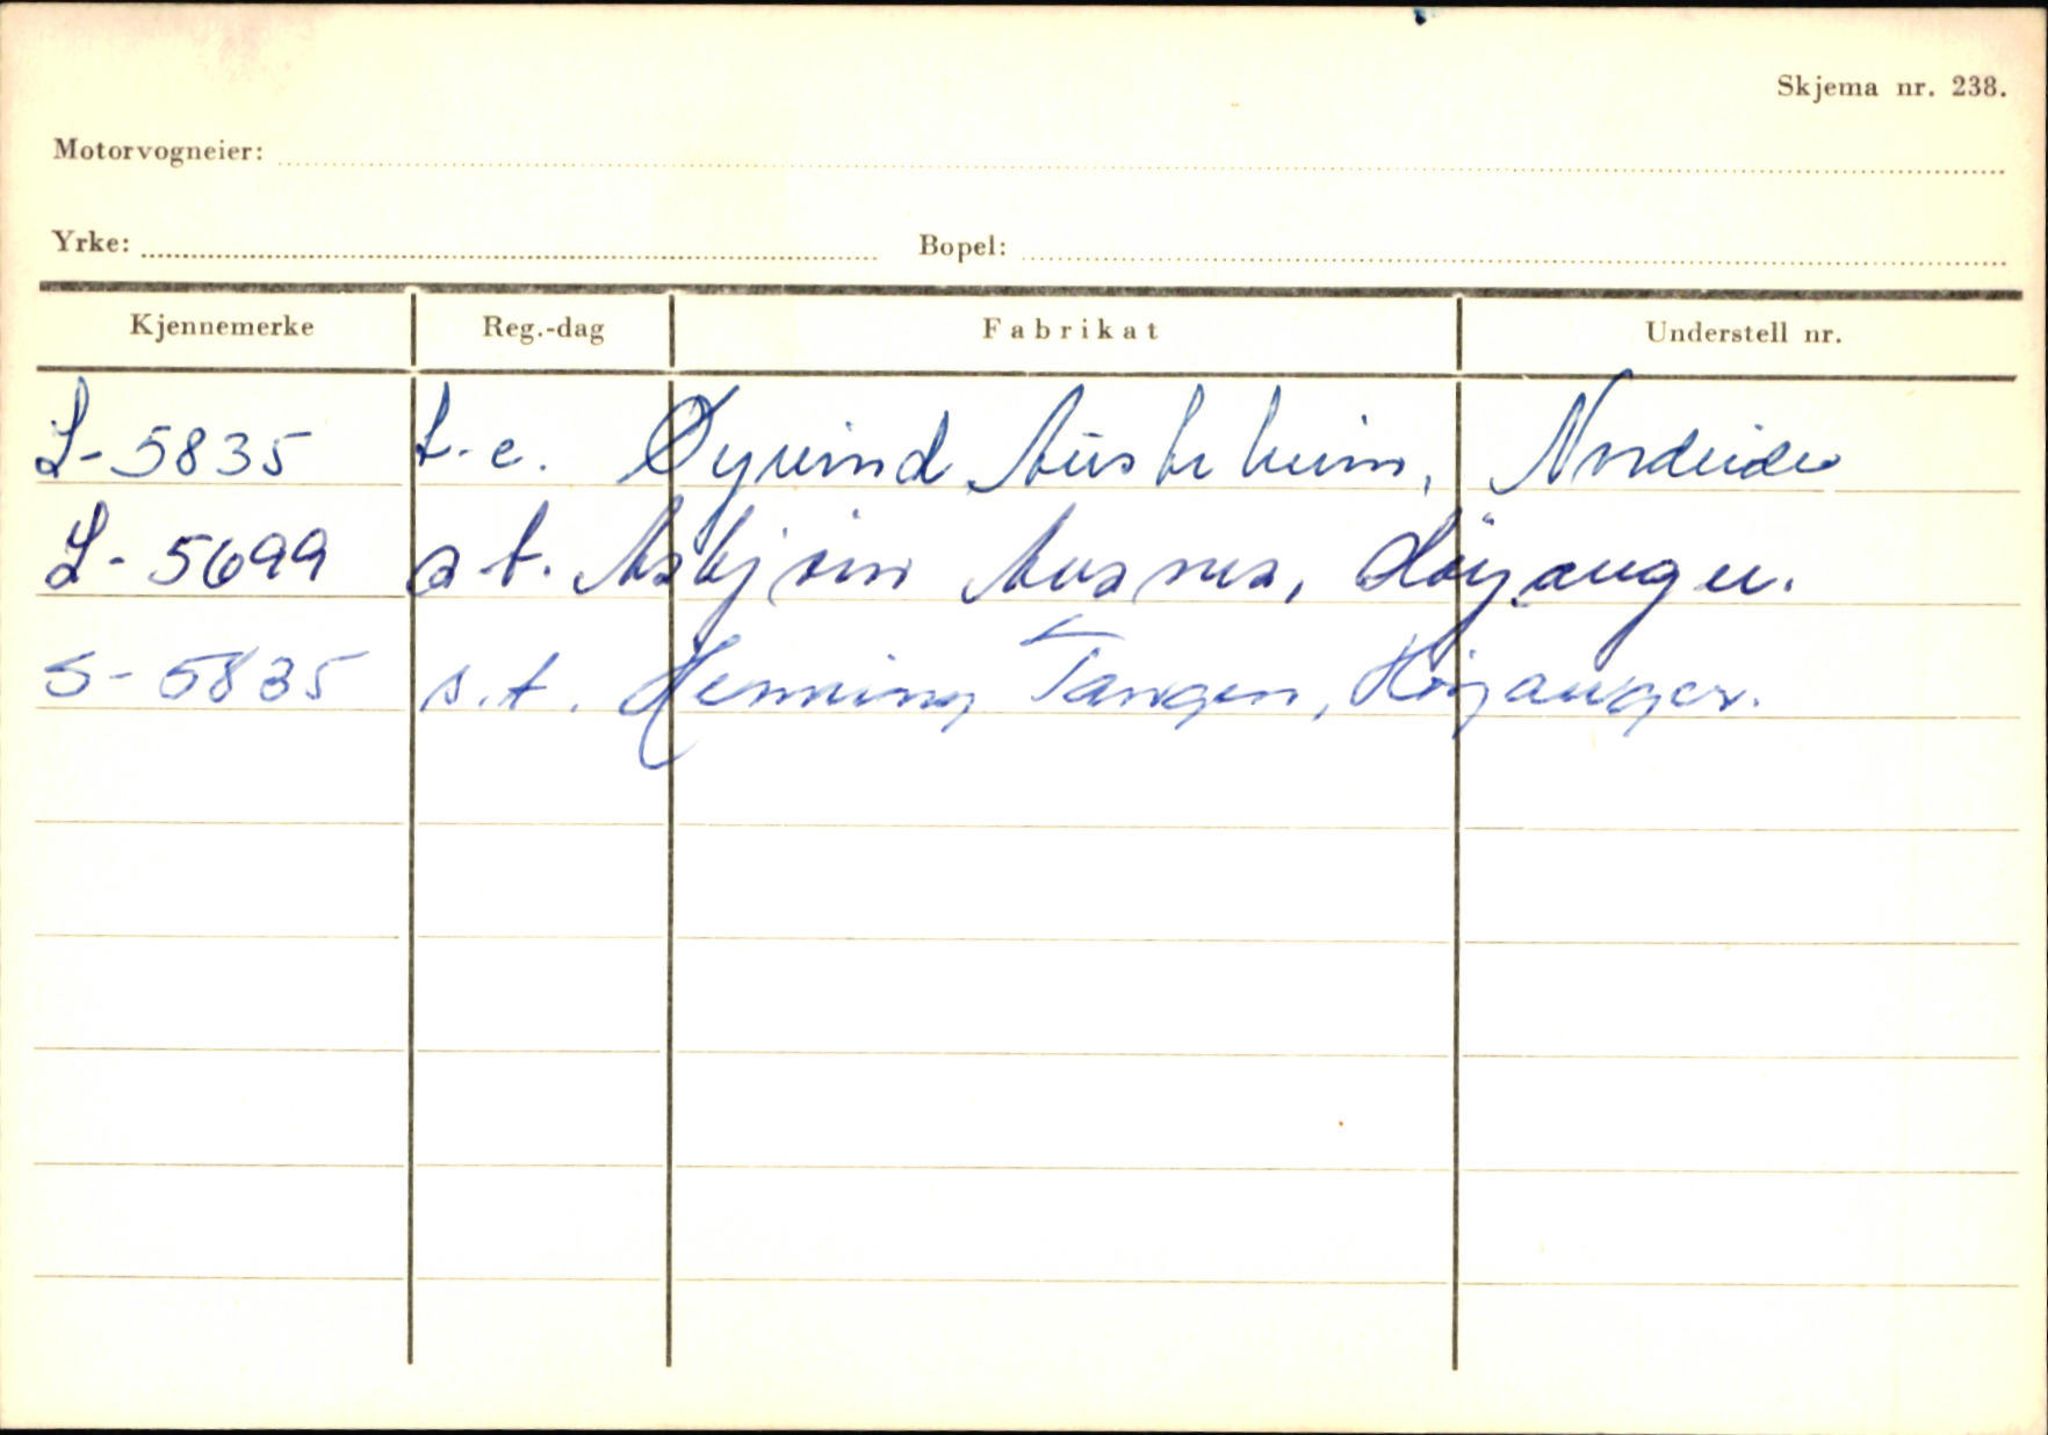 Skjema nr. 238.
Motorvogneier:
Yrke: Bopel:
Kjennemerke Reg.-dag Fabrikat Understell nr.
S-5835 t.e. Øyvind Austrheim, Nordeide
S-5699 s.t. Asbjørn Ausnes, Høyanger.
S-5835 s.t. Henning Tangen, Høyanger.